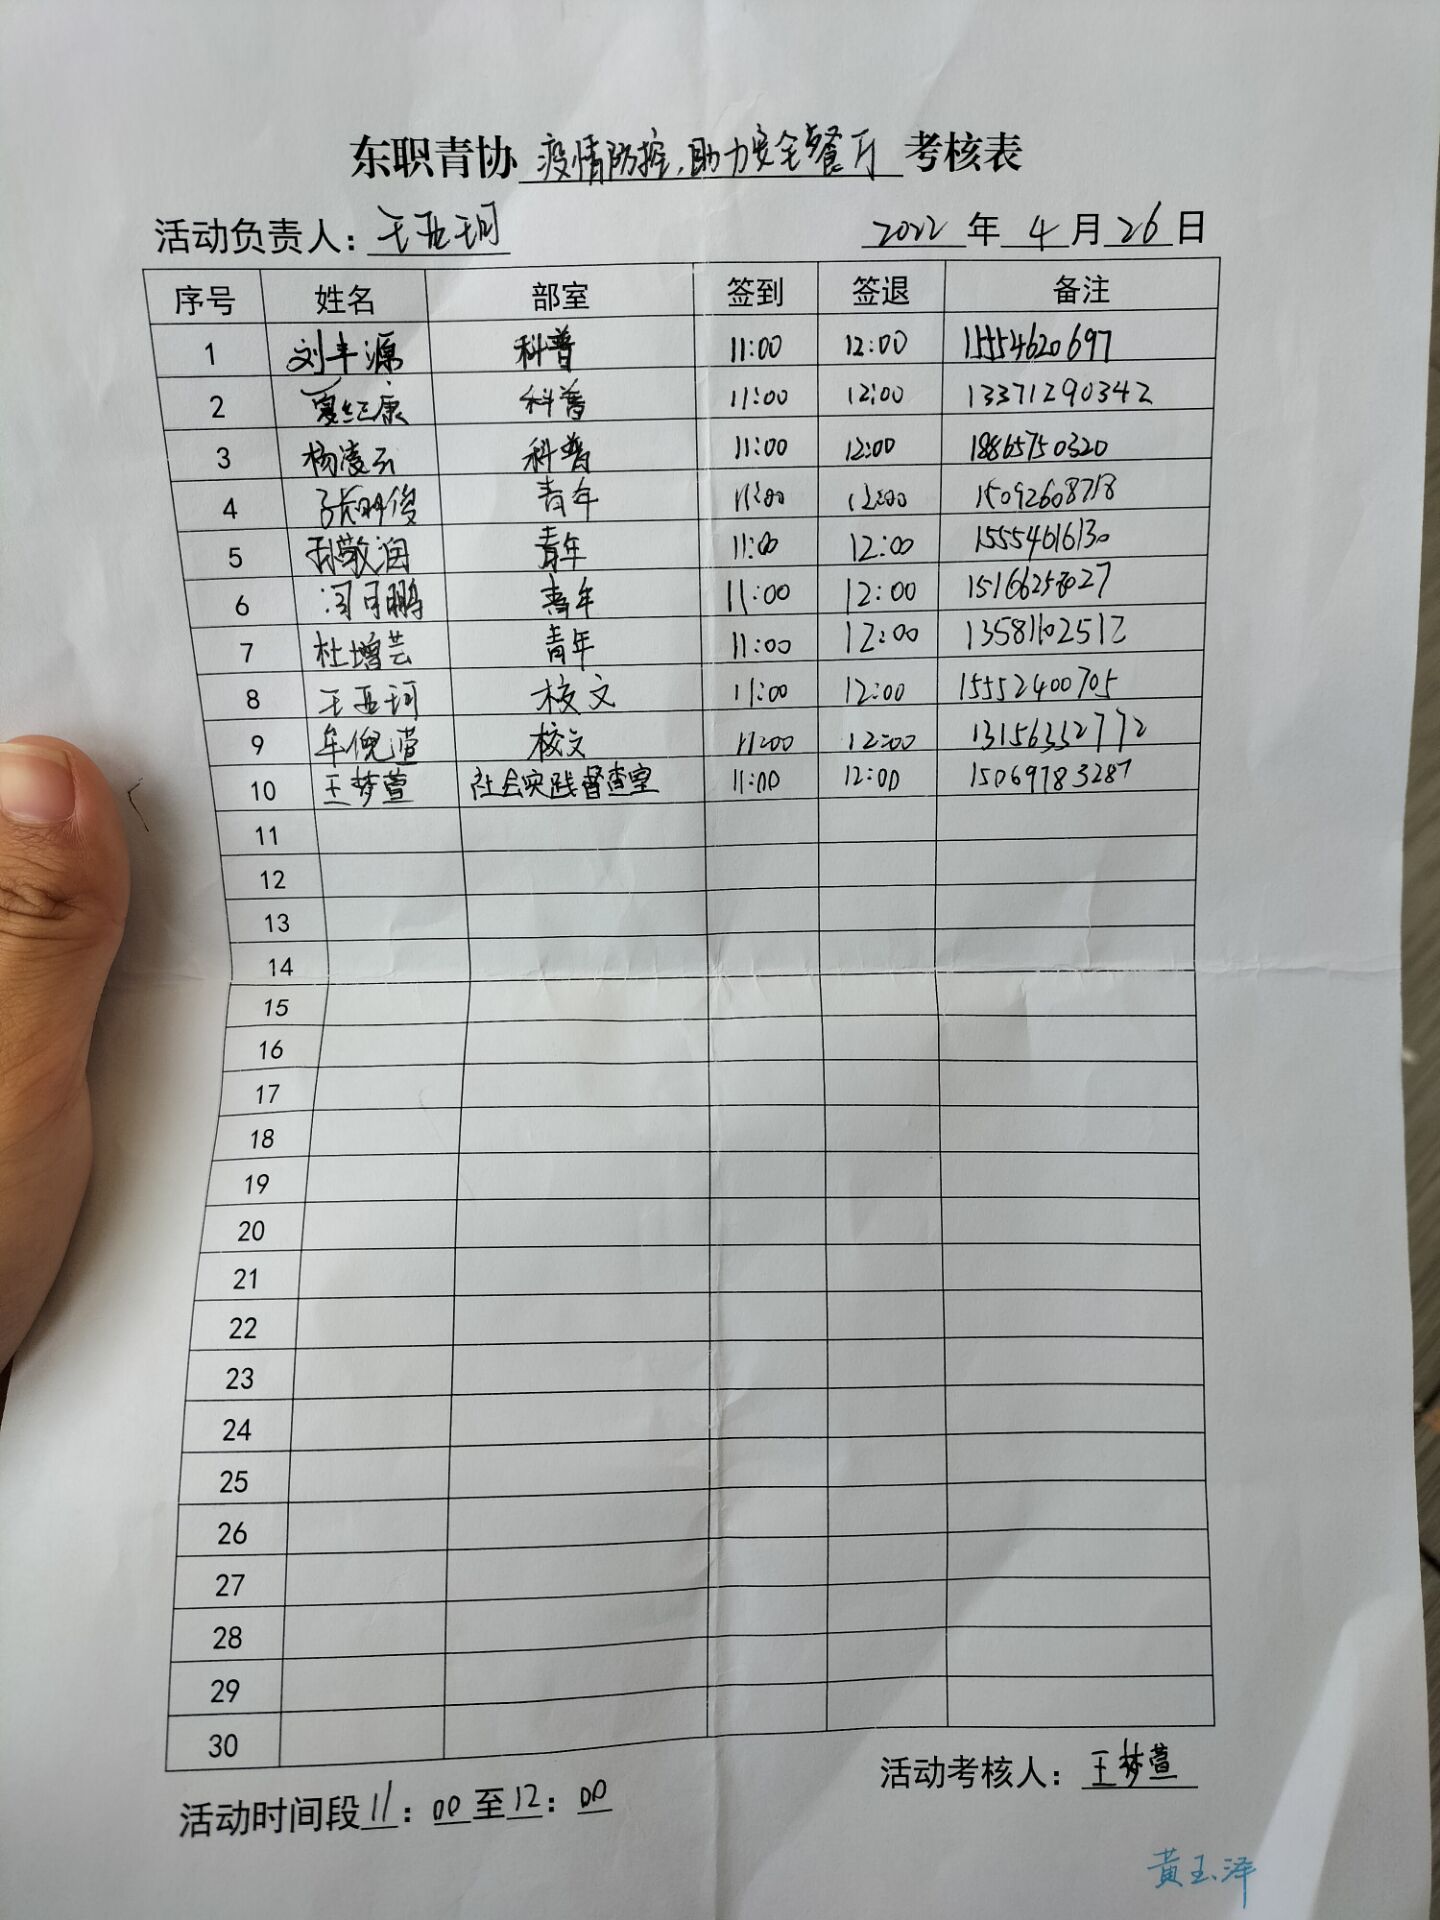 东职青协 疫情防控，助力安全餐厅 考核表
活动负责人：王亚珂 2022 年 4 月 26 日
序号 姓名 部室 签到 签退 备注
1 刘丰源 科普 11:00 12:00 15554620697
2 夏红康 科普 11:00 12:00 13371290342
3 杨凌云 科普 11:00 12:00 18865750320
4 张明俊 青年 11:00 12:00 15092608718
5 孙敬润 青年 11:00 12:00 15554616130
6 冯可鹏 青年 11:00 12:00
7 杜增芸 青年 11:00 12:00 13581102512
8 王亚珂 校文 11:00 12:00 15552400705
9 牟倪萱 校文 11:00 12:00 13156332772
10 王梦萱 社会实践督查室 11:00 12:00 15069783287
11
12
13
14
15
16
17
18
19
20
21
22
23
24
25
26
27
28
29
30
活动时间段11：00至12：00 活动考核人：王梦萱
黄玉泽